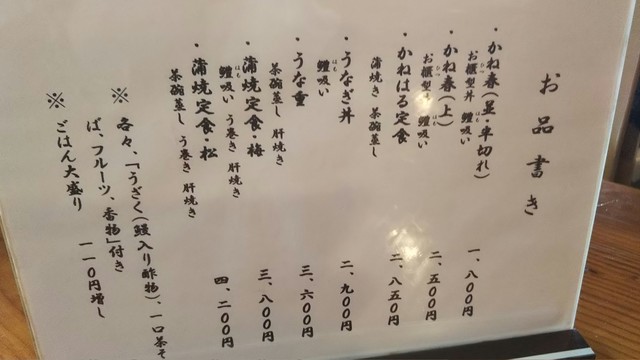 お品書き
・かね春(並・半切れ)
お櫃型丼 鱧吸い
一、八〇〇円
・かね春(上)
お櫃型丼 鱧吸い
二、五〇〇円
・かねはる定食
蒲焼き 茶碗蒸し
二、八五〇円
・うなぎ丼
鱧吸い
二、九〇〇円
・うな重
茶碗蒸し 肝焼き
三、六〇〇円
・蒲焼定食・梅
鱧吸い う巻き 肝焼き
三、八〇〇円
・蒲焼定食・松
茶碗蒸し う巻き 肝焼き
四、二〇〇円
※ 各々、「うざく(鰻入り酢物)、一口茶そ
ば、フルーツ、香物」付き
※ ごはん大盛り 一一〇円増し